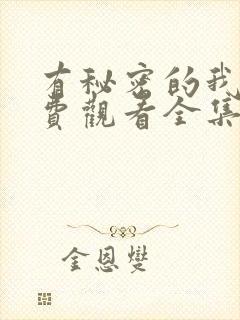 有秘密的我
费觀看全集
金恩燮